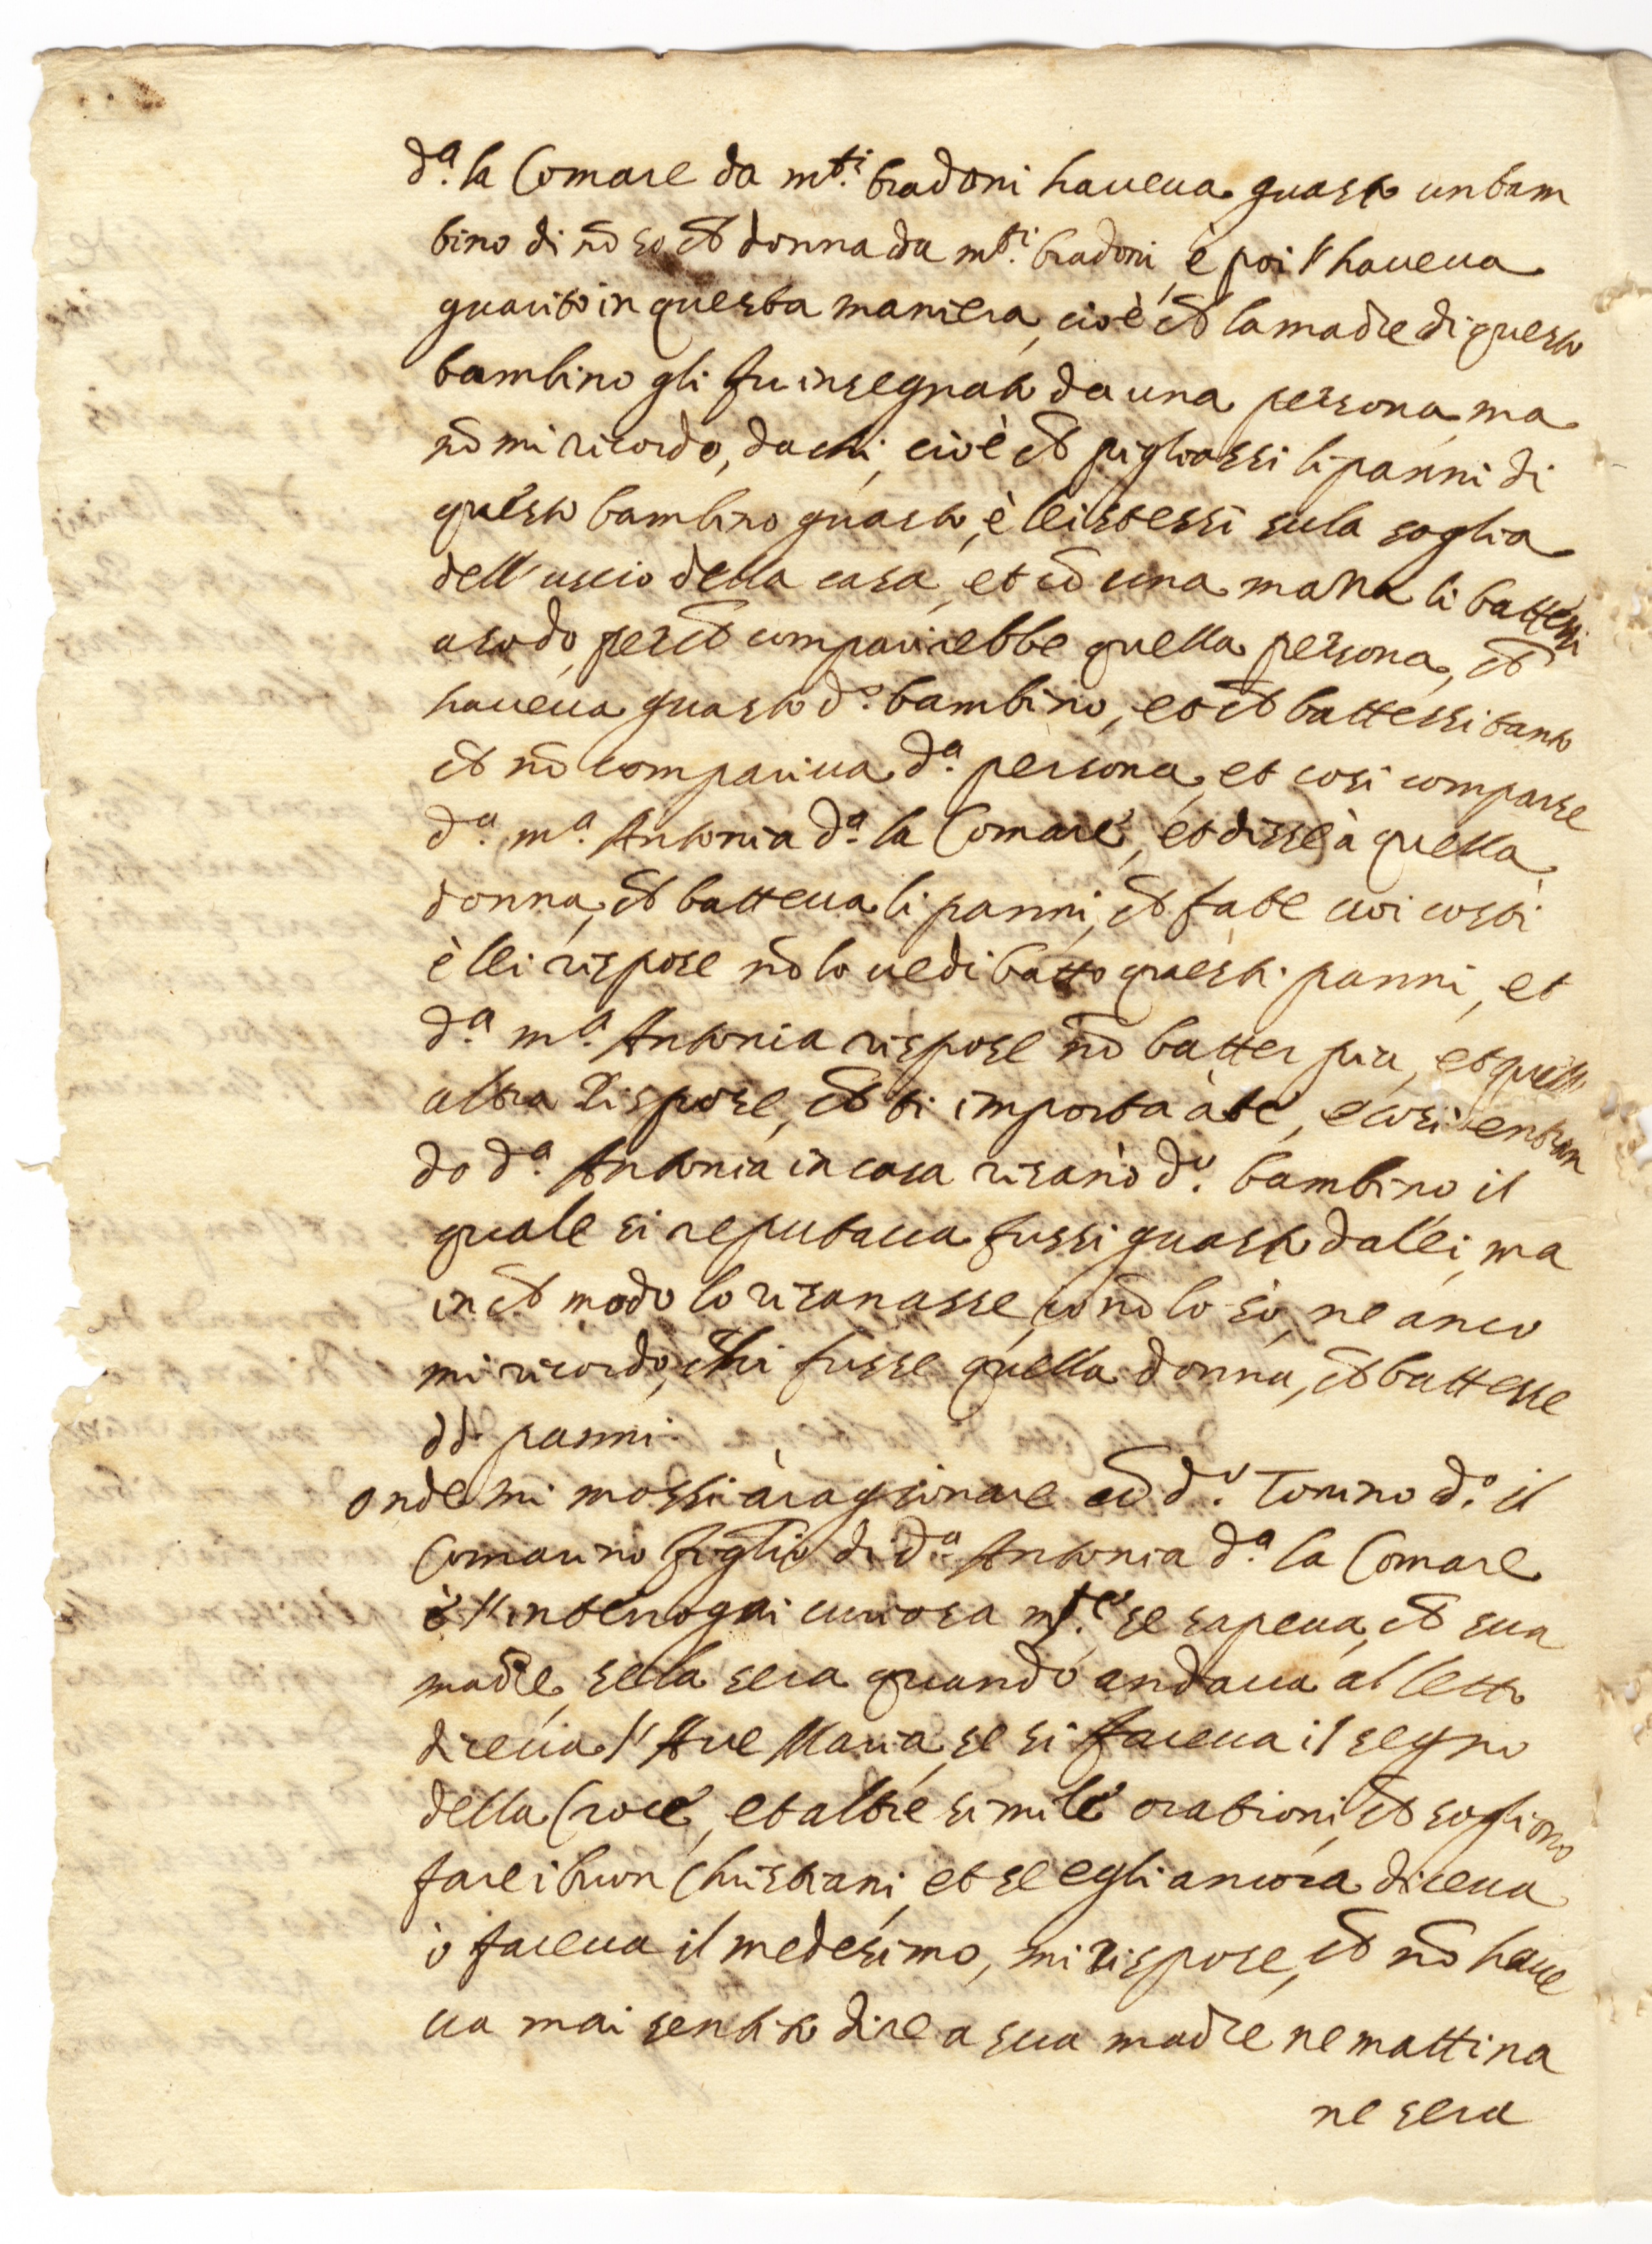 d.ª la Comare da m.ti bradoni haueua guasto un bam
bino di nō so ch donna da m.ti bradoni, è poi l'haueua
guarito in questa maniera, cioè ch la madre di questo
bambino gli fu insegnato da una persona, ma
nō mi ricordo, da chi, cioè ch pigliassi li panni di
questo bambino guasto, è li stessi su la soglia
dell'uscio della casa, et cō una mazza li battessi
a sodo, perch comparirebbe quella persona, ch
haueua guasto d.º bambino, et ch battessi tanto
ch nō compariua d.ª persona, et cosi comparse
d.ª m.ª Antonia d.ª la Comare, et disse à quella
donna, ch batteua li panni, ch fate uoi costi
è lei rispose nō lo uedi batto questi panni, et
d.ª m.ª Antonia rispose nō batter piu, et quell
altra Rispose, ch ti importa à te, e cosi entran
do d.ª Antonia in casa risanò d.º bambino il
quale si reputaua fussi guasto da lei, ma
in ch modo lo risanasse, io nō lo sò, ne anco
mi ricordo, chi fusse quella donna, ch battesse
dd. panni.
onde mi mossi à ragionare cō d.º Tonino d.º il
Comarino figlio di d.ª Antonia d.ª la Comare
è l'interrogai curiosa m.te se sapeua, ch sua
madre, se la sera quando andaua al letto
diceua l'Aue Maria, se si faceua il segno
della Croce, et altre simile orationi, ch sogliono
fare i buon Christiani, et se egli ancora diceua
ò faceua il medesimo, mi rispose, ch nō haue
ua mai sentito dire a sua madre ne mattina
ne sera